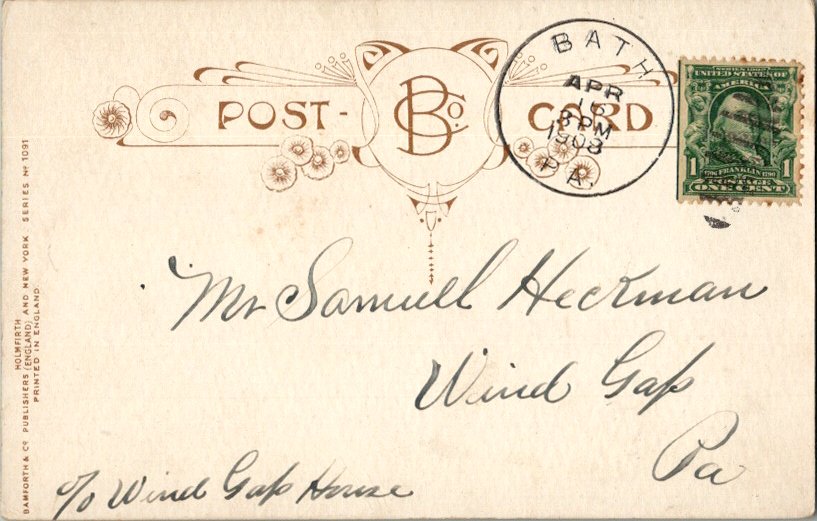 POST-
B Co.
CARD
BATH
APR
16
3 PM
1908
PA.
SERIES 1902
UNITED STATES OF
AMERICA
1706 FRANKLIN 1790
1 POSTAGE 1
ONE CENT
Mr Samuell Heckman
Wind Gap
Pa
c/o Wind Gap House
BAMFORTH & Co PUBLISHERS HOLMFIRTH (ENGLAND) AND NEW YORK SERIES No 1091
PRINTED IN ENGLAND